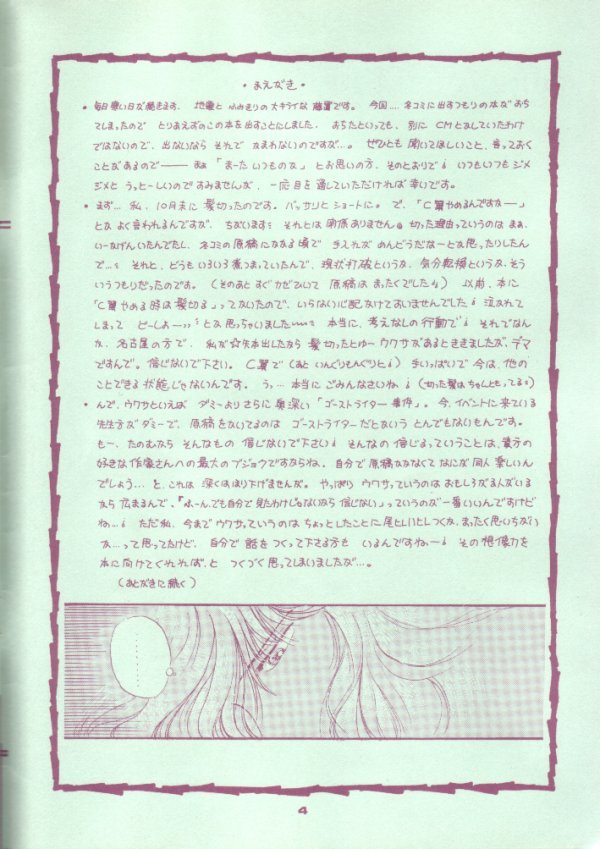 ・まえがき・
・毎日寒い日が続きます、地震と ふみきりの大キライな 藤翼です。今回…、ネコミに出すつもりの本がおち
てしまったので とりあえずのこの本を出すことにしました。おちたといっても、別に CMとかしていたわけ
ではないので、出ないなら それで かまわないのですが…。ぜひとも 聞いてほしいこと、言っておく
ことがあるので――― まぁ「まーた いつものか」とお思いの方、そのとおりです いつもいつもジメ
ジメと うっとーしいのですみませんが、一応目を通していただければ幸いです。
・まず…私、10月末に 髪切ったのです。バッサリと ショートに。で、「C翼やめるんですかー」
とか よく言われるんですが、ちがいます それとは関係ありません。切った理由っていうのは まぁ、
いーかげんいたんでたし、ネコミの原稿にかかる頃で 手入れが めんどうだなーとか思ったりしたん
で…。それと、どうも いろいろ煮つまっていたんで、現状打破というか、気分転換というか、そう
いうつもりだったのです。(そのあと すぐ かぜひいて 原稿は まったくでした) 以前、本に
「C翼やめる時は髪切る」ってかいたので、いらない心配かけておいませんでした 泣かれて
しまって どーしよーっっ とか思っちゃいました 本当に、考えなしの行動で それでなん
か、名古屋の方で、私が☆矢本出したなら 髪切ったとゆー ウワサがあるとききましたが、デマ
ですんで。信じないで下さい。C翼で(あと いんぐりもんぐりと) 手いっぱいで 今は、他の
ことできる状態じゃないんです。うっ…本当にごみんなさいね (切った髪はちゃんともってる)
・んで、ウワサといえば ダミーよりさらに奥深い「ゴーストライター事件」。今、イベントに来ている
先生方がダミーで、原稿をかいてるのは ゴーストライターだとという とんでもないもんです。
もー、たのむなら そんなもの 信じないで下さい そんなの 信じるっていうことは、貴方の
好きな作家さんへの最大のブジョクですからね。自分で原稿かかなくて なにが同人 楽しいん
でしょう…と、これは 深くはほり下げませんが。やっぱり ウワサっていうのは おもしろがる人がいる
から 広まるんで、『ふーん。でも自分で見たわけじゃないなら 信じない』っていうのが一番いいんですけど
ね…。ただ私、今まで ウワサっていうのは ちょっとしたことに 尾ヒレハヒレつくか、まったく思いちがい
か…って思ってたけど、自分で 話を つくって下さる方も いるんですねー その想像力を
本に向けてくれれば、と つくづく思ってしまいましたが…。
(あとがきに続く)
………
4